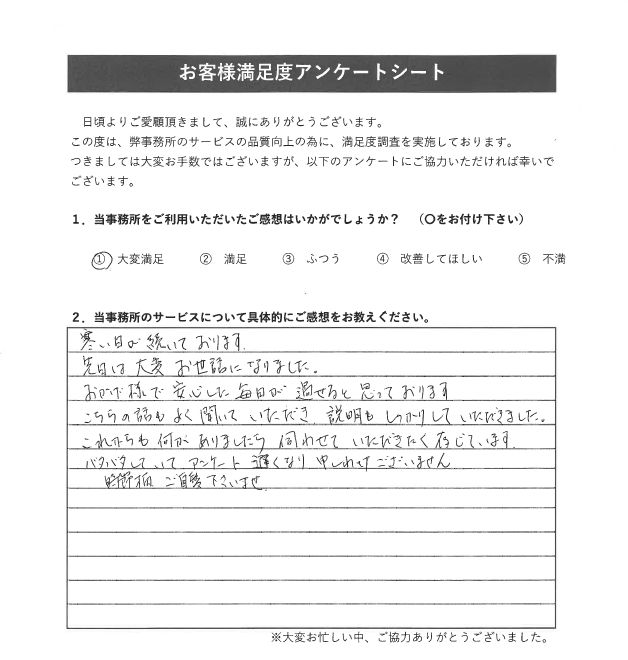 お客様満足度アンケートシート
日頃よりご愛顧頂きまして、誠にありがとうございます。
この度は、弊事務所のサービスの品質向上の為に、満足度調査を実施しております。
つきましては大変お手数ではございますが、以下のアンケートにご協力いただければ幸いで
ございます。
1．当事務所をご利用いただいたご感想はいかがでしょうか？　（〇をお付け下さい）
① 大変満足　② 満足　③ ふつう　④ 改善してほしい　⑤ 不満
2．当事務所のサービスについて具体的にご感想をお教えください。
寒い日が続いております。
先日は大変お世話になりました。
おかげ様で安心した毎日が過せると思っております
こちらの話もよく聞いていただき、説明もしっかりしていただきました。
これからも何かありましたら伺わせていただきたく存じています。
バタバタしていてアンケート遅くなり申しわけございません
時節柄ご自愛下さいませ
※大変お忙しい中、ご協力ありがとうございました。